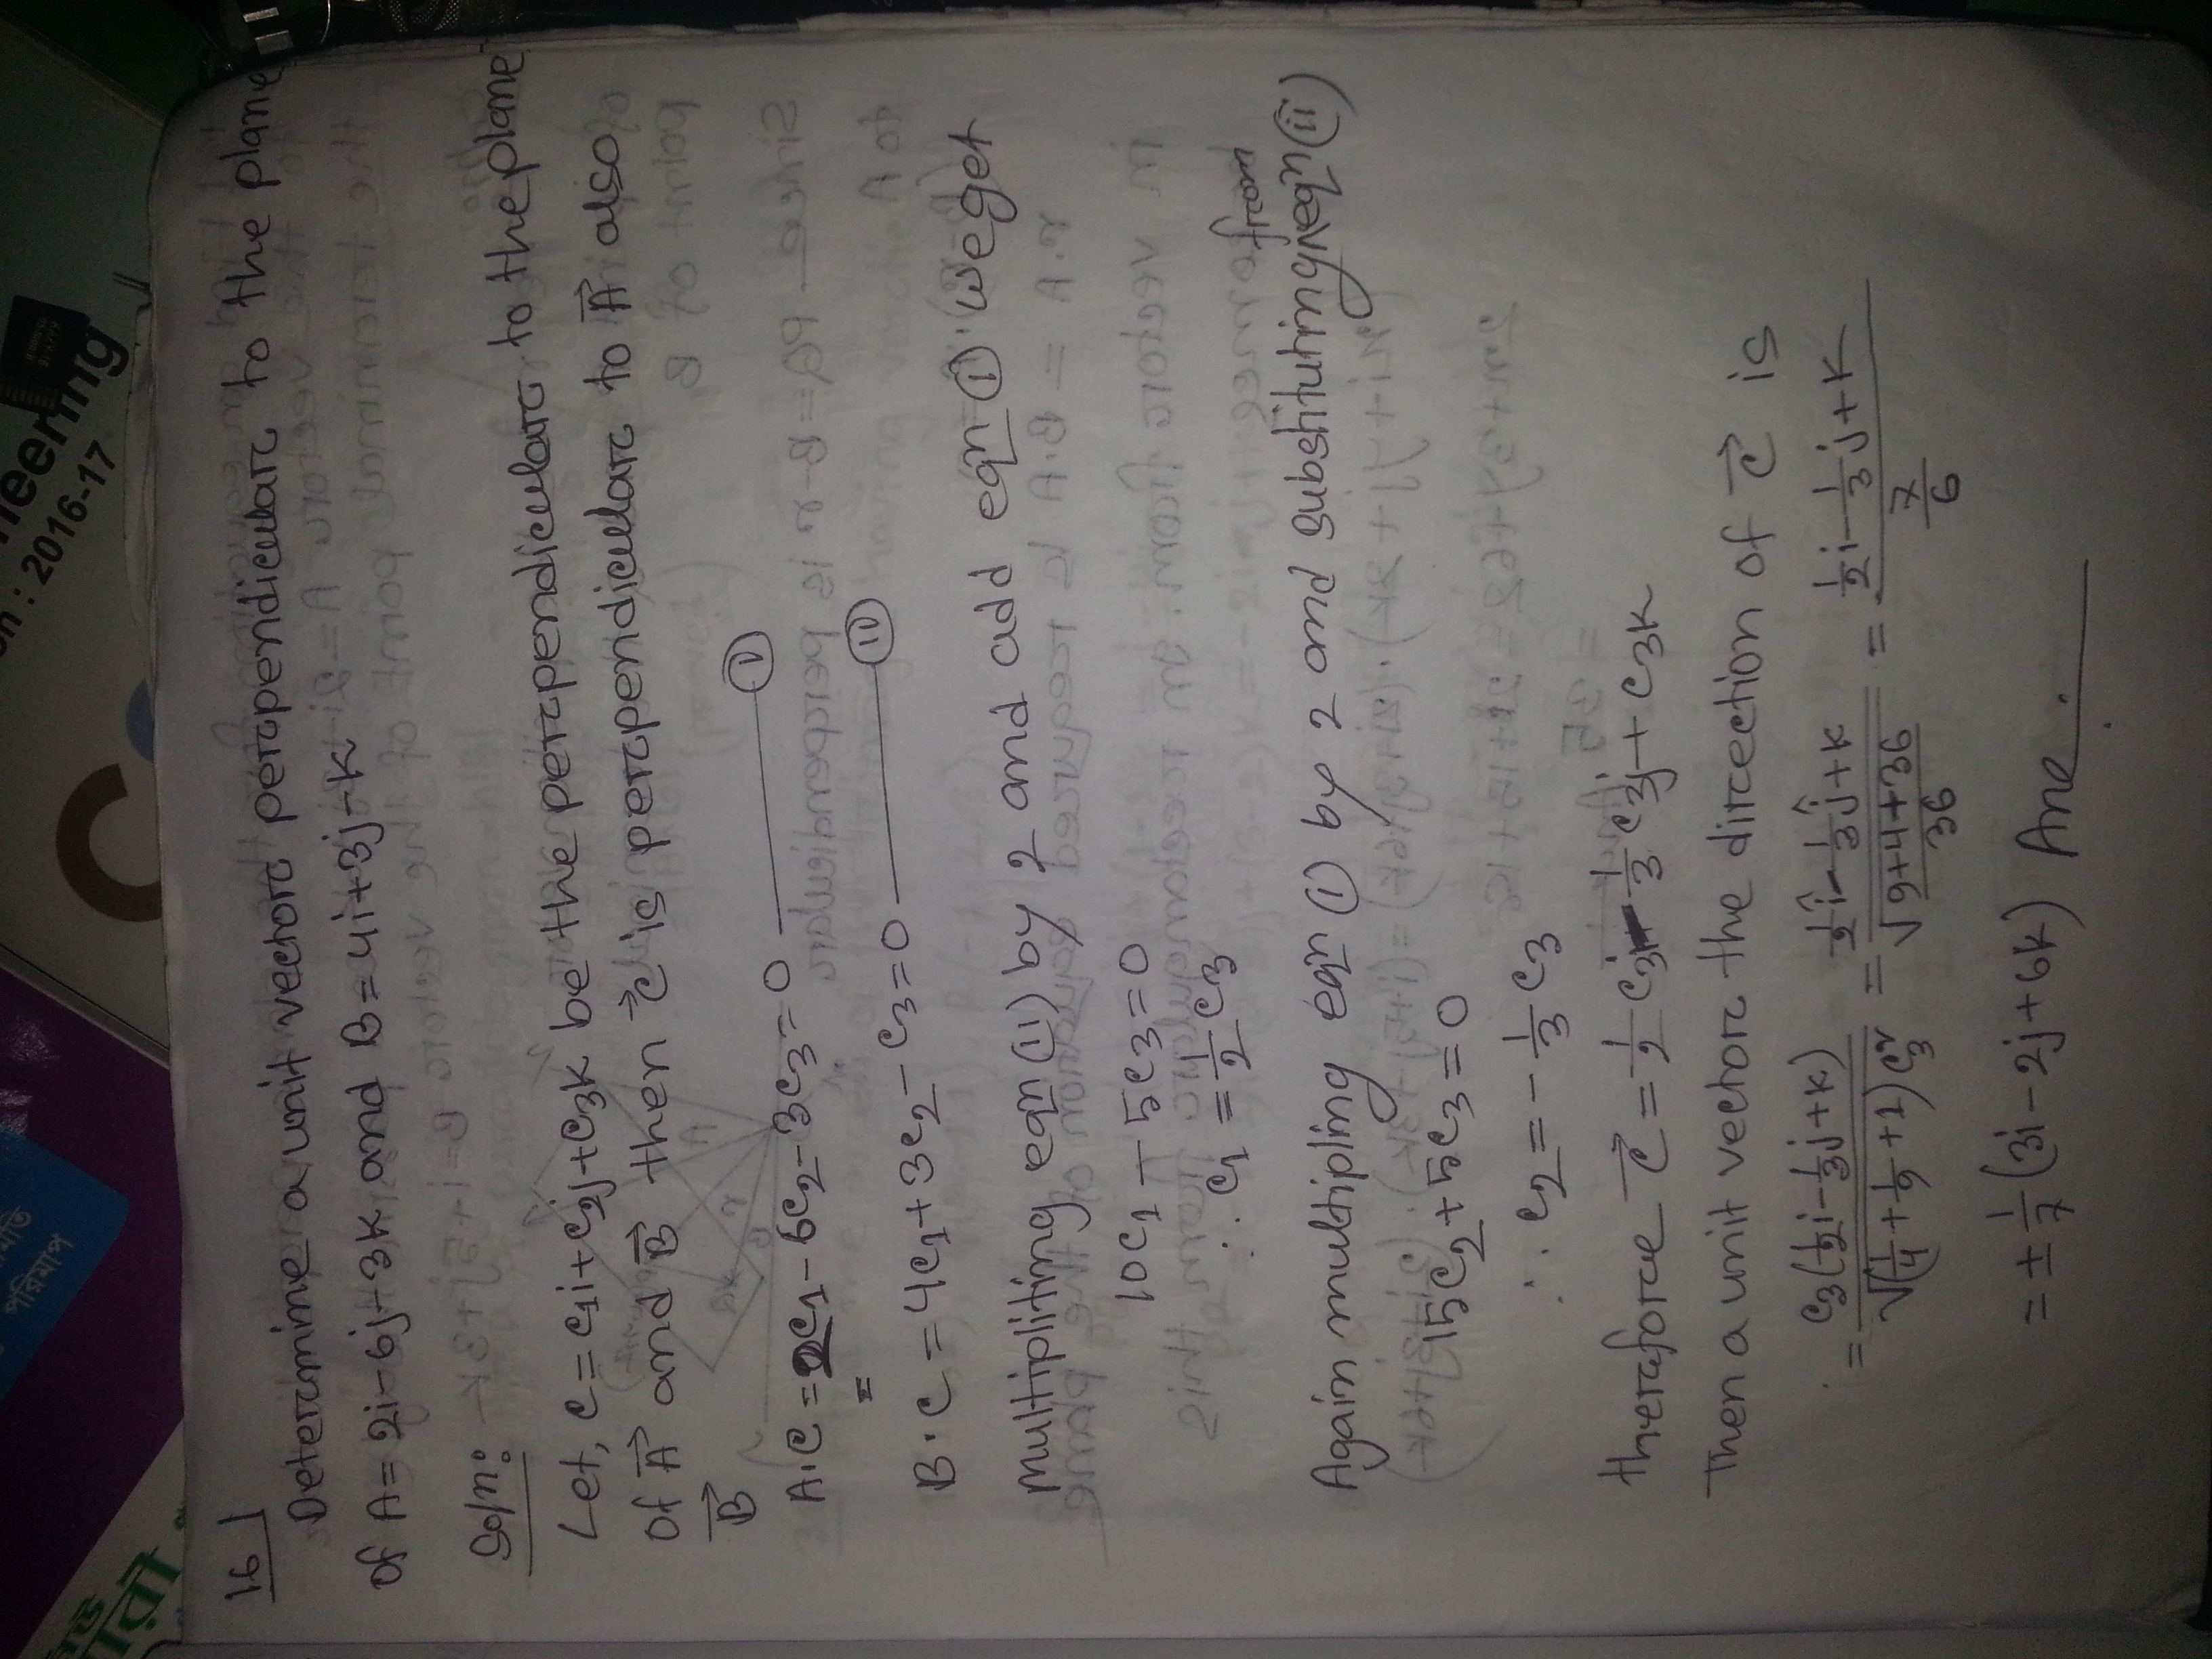 মিতি
পরিমাপ
neering
on : 2016-17
C
16
Determine a unit vector perpendicular to the plane
of A = 2i-6j-3k and B = 4i+3j-k
Soln:
Let, C = C₁i+C₂j+C₃k be the perpendicular to the plane
of A⃗ and B⃗ then C⃗ is perpendicular to A⃗ also
B⃗
A.C = 2C₁-6C₂-3C₃=0 — (i)
=
B.C = 4C₁+3C₂-C₃=0 — (ii)
Multipliting eqn (ii) by 2 and add eqn (i) we get
10C₁ - 5C₃ = 0
∴ C₁ = 1/2 C₃
Again multipling eqn (i) by 2 and substituting from eqn (ii)
15C₂+5C₃=0
∴ C₂ = -1/3 C₃
therefore C⃗ = 1/2 C₃i - 1/3 C₃j + C₃k
Then a unit vector the direction of C⃗ is
= C₃(1/2 i - 1/3 j + k) / √(1/4 + 1/9 + 1)C₃² = (1/2 î - 1/3 ĵ + k) / √(9+4+36)/36 = (1/2 i - 1/3 j + k) / 7/6
= ± 1/7 (3i - 2j + 6k) Ans.